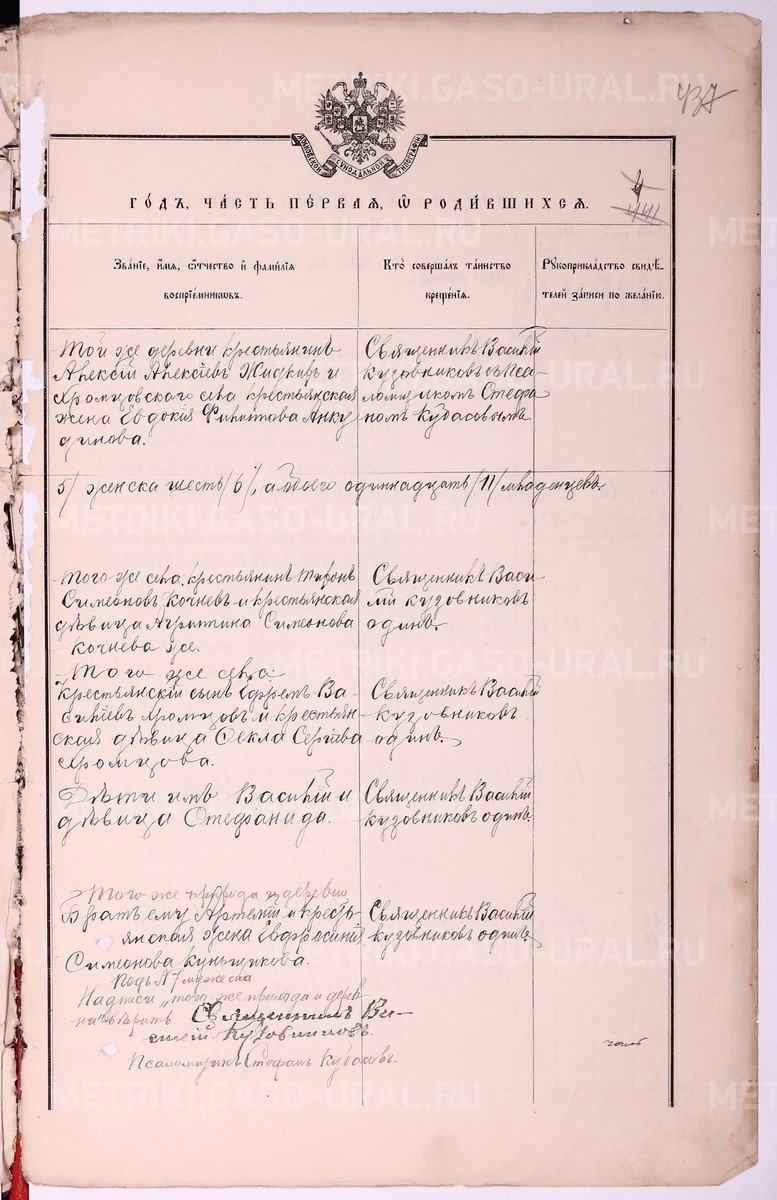 METRIKI.GASO-URAL.RU
437
МОСКОВСКОЙ СѴНОДАЛЬНОЙ ТИПОГРАФІИ
4
441
ГО́ДЪ, ЧА́СТЬ ПЕ́РВАЯ, Ѽ РОДИ́ВШИХСЯ.
Зва́ніе, и҆́мя, ѻ҆́тчество и҆ фами́лія
воспріе́мниковъ.
Кто̀ соверша́лъ та́инство
креще́нія.
Рꙋкоприкла́дство свидѣ́-
телей за́писи по жела́нію.
Той же деревни крестьянинъ
Алексій Алексіевъ Жидкихъ и
Хромцовскаго села крестьянская
жена Евдокія Филиппова Анку
динова.
Священникъ Василій
Кузовниковъ съ Пса-
ломщикомъ Стефа
номъ Кубасовымъ
5/ женска шесть /6/, а обоего одиннадцать /11/ младенцевъ.
Того же села крестьянинъ Миронъ
Симеоновъ Кочневъ и крестьянская
дѣвица Агриппина Симеонова
Кочнева же.
Священникъ Васи-
лій Кузовниковъ
одинъ.
Того же села
крестьянскій сынъ Ефремъ Ва-
силіевъ Хромцовъ и крестьян
ская дѣвица Ѳекла Сергіева
Хромцова.
Священникъ Василій
Кузовниковъ
одинъ.
Дѣти имъ Василій и
дѣвица Стефанида.
Священникъ Василій
Кузовниковъ одинъ.
Того же прихода и деревни
Братъ ему Артемій и кресть-
янская жена Евфросинія
Симеонова Куньщикова.
Священникъ Василій
Кузовниковъ одинъ.
Подъ №7 мужеска
Надписи „того же прихода и дерев
ни" вѣрить Священникъ Ва-
силій Кузовниковъ.
Псаломщикъ Стефанъ Кубасовъ.